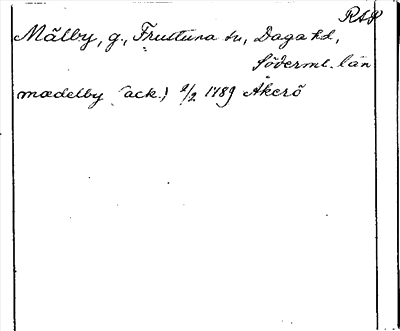 RAP
Mälby, g., Frustuna sn, Daga hd,
Söderml. län
mædelby (ack.) 2/2 1789 Åkerö